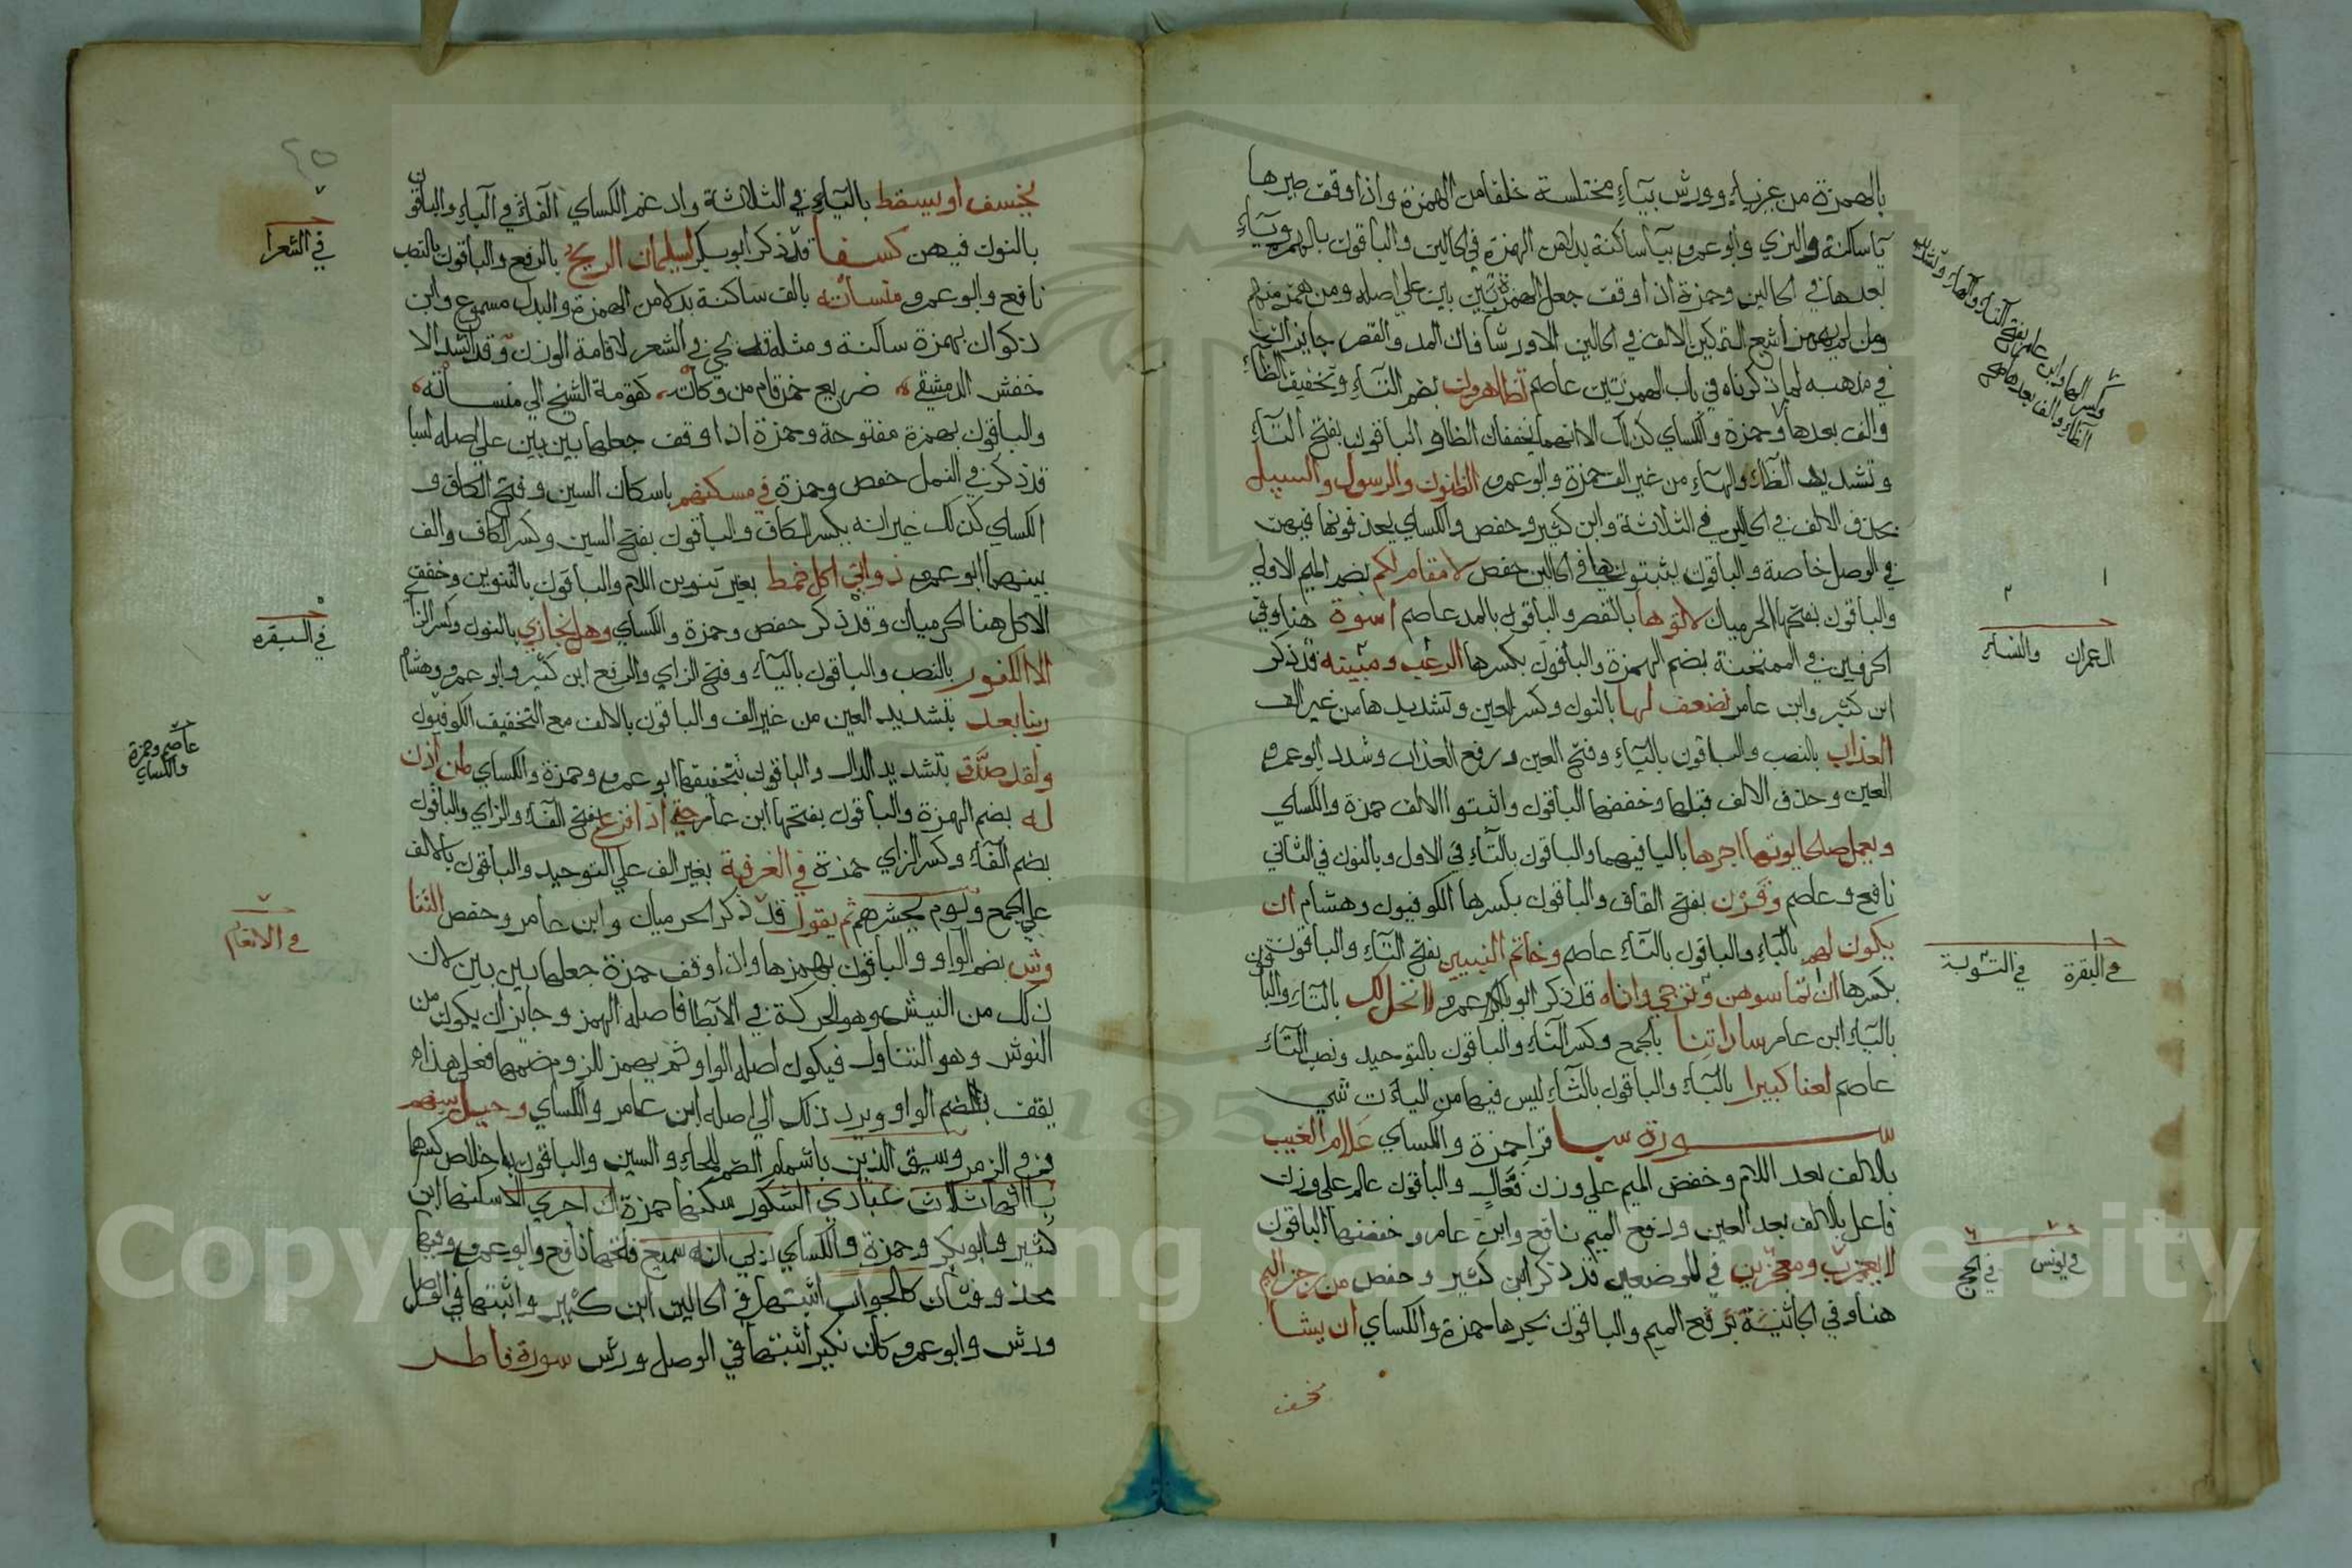 بالهمزة من غير ياء وورش بياء مختلسة خلفا من الهمزة واذا وقف صيرها
ياء ساكنة والبزي وابو عمرو بيا ساكنة بدلا من الهمزة في الحالين والباقون بالهمزة وياء
بعدها في الحالين وحمزة اذا وقف جعل الهمزة بين بين علي اصله ومن همز منهم
ومن لم يهمز اشبع التمكين للالف في الحالين الا ورشا فان المد والقصر جايزان
في مذهبه لما ذكرناه في باب الهمزتين عاصم تظاهرون بضم التاء وتخفيف الظاء
والف بعدها وحمزة والكساي كذلك الا انهما يخففان الظاء والباقون بفتح التاء
وتشديد الظاء والهاء من غير الف حمزة وابو عمرو الظنون والرسول والسبيل
بحذف الالف في الحالين في الثلاثة وابن كثير وحفص والكساي بحذفونها فيهن
في الوصل خاصة والباقون يثبتونها في الحالين حفص لا مقام لكم بضم الميم الاولي
والباقون بفتحها الحرميان لاتوها بالقصر والباقون بالمد عاصم اسوة هنا وفي
الحرفين في الممتحنة بضم الهمزة والباقون بكسرها الرعب ومبينه قد ذكر
ابن كثير وابن عامر نضعف لها بالنون وكسر العين وتشديدها من غير الف
العذاب بالنصب والباقون بالياء وفتح العين ورفع العذاب وشدد ابو عمرو
العين وحذف الالف قبلها وخففها الباقون واثبتوا الالف حمزة والكساي
ويعمل صلحا يوتها اجرها باليا فيهما والباقون بالتاء في الاول وبالنون في الثاني
نافع وعاصم وقرن بفتح القاف والباقون بكسرها الكوفيون وهشام ان
يكون لهم بالياء والباقون بالتاء عاصم وخاتم النبيين بفتح التاء والباقون
بكسرها ان تماسوهن وترجي واناه قد ذكر ابو عمرو لا تحل لك بالتاء والبا
بالياء ابن عامر ساداتنا بالجمع وكسر التاء والباقون بالتوحيد ونصب التاء
عاصم لعنا كبيرا بالباء والباقون بالثاء ليس فيها من الياءت شي
سورة سبا قرا حمزة والكساي علام الغيب
بالالف بعد اللام وخفض الميم علي وزن فعال والباقون عالم علي وزن
فاعل بالالف بعد العين ورفع الميم نافع وابن عامر وخفضها الباقون
لا يعزب ومعجزين في الموضعين قد ذكر ابن كثير وحفص من رجز اليم
هنا وفي الجاثية برفع الميم والباقون بجرها حمزة والكساي ان يشا
نخسف
ال عمران والنساء
في البقرة في التوبة
في يونس في الحج
٢٥
يخسف او يسقط بالياء في الثلاثة وادغم الكساي الفاء في الباء والباقون
بالنون فيهن كسفا قد ذكر ابو بكر لسليمان الريح بالرفع والباقون بالنصب
نافع وابو عمرو منسأته بالف ساكنة بدلا من الهمزة والبدل مسموع وابن
ذكوان بهمزة ساكنة ومثله قد يجي في الشعر لاقامة الوزن وقد انشد الا
خفش الدمشقي ضريع خمر قام من وكأته كقومة الشيخ الي منسأته
والباقون بهمزة مفتوحة وحمزة اذا وقف جعلها بين بين علي اصله لسبا
قد ذكر في النمل حفص وحمزة في مسكنهم باسكان السين وفتح الكاف و
الكساي كذلك غير انه بكسر الكاف والباقون بفتح السين وكسر الكاف والف
بينهما ابو عمرو ذواتي اكل خمط بغير تنوين اللام والباقون بالتنوين وخفف
الاكل هنا الحرميان وقد ذكر حفص وحمزة والكساي وهل نجازي بالنون وكسر الزا
الا الكفور بالنصب والباقون بالياء وفتح الزاي والرفع ابن كثير وابو عمرو وهشام
ربنا بعد بتشديد العين من غير الف والباقون بالالف مع التخفيف الكوفيون
ولقد صدق بتشديد الدال والباقون بتخفيفها ابو عمرو وحمزة والكساي لمن اذن
له بضم الهمزة والباقون بفتحها ابن عامر حتي اذا فزع بفتح الفاء والزاي والباقون
بضم الفاء وكسر الزاي حمزة في الغرفة بغير الف علي التوحيد والباقون بالالف
علي الجمع ويوم يحشرهم ثم يقول قد ذكر الحرميان وابن عامر وحفص التنا
وش بضم الواو والباقون بهمزها واذا وقف حمزة جعلها بين بين لان
ذلك من النيش وهو الحركة في الابطا فاصله الهمز وجايز ان يكون من
النوش وهو التناول فيكون اصله الواو ثم يهمز للزوم ضمها فعلي هذا
يقف بضم الواو ويرد ذلك الي اصله ابن عامر والكساي وحيل بينهم
وفي الزمر وسيق الذين باشمام الضم للحاء والسين والباقون باخلاص كسرهما
ياءاتها ثلاث عبادي الشكور سكنها حمزة ان اجري الا سكنها ابن
كثير وابو بكر وحمزة والكساي ربي انه سميع فتحها نافع وابو عمرو وفيها
محذوفتان كالجواب اثبتها في الحالين ابن كثير واثبتها في الوصل
ورش وابو عمرو كان نكير اثبتها في الوصل ورش سورة فاطر
في الشعرا
في البقرة
عاصم وحمزة
والكساي
في الانعام
Copyright © King Saud University
195